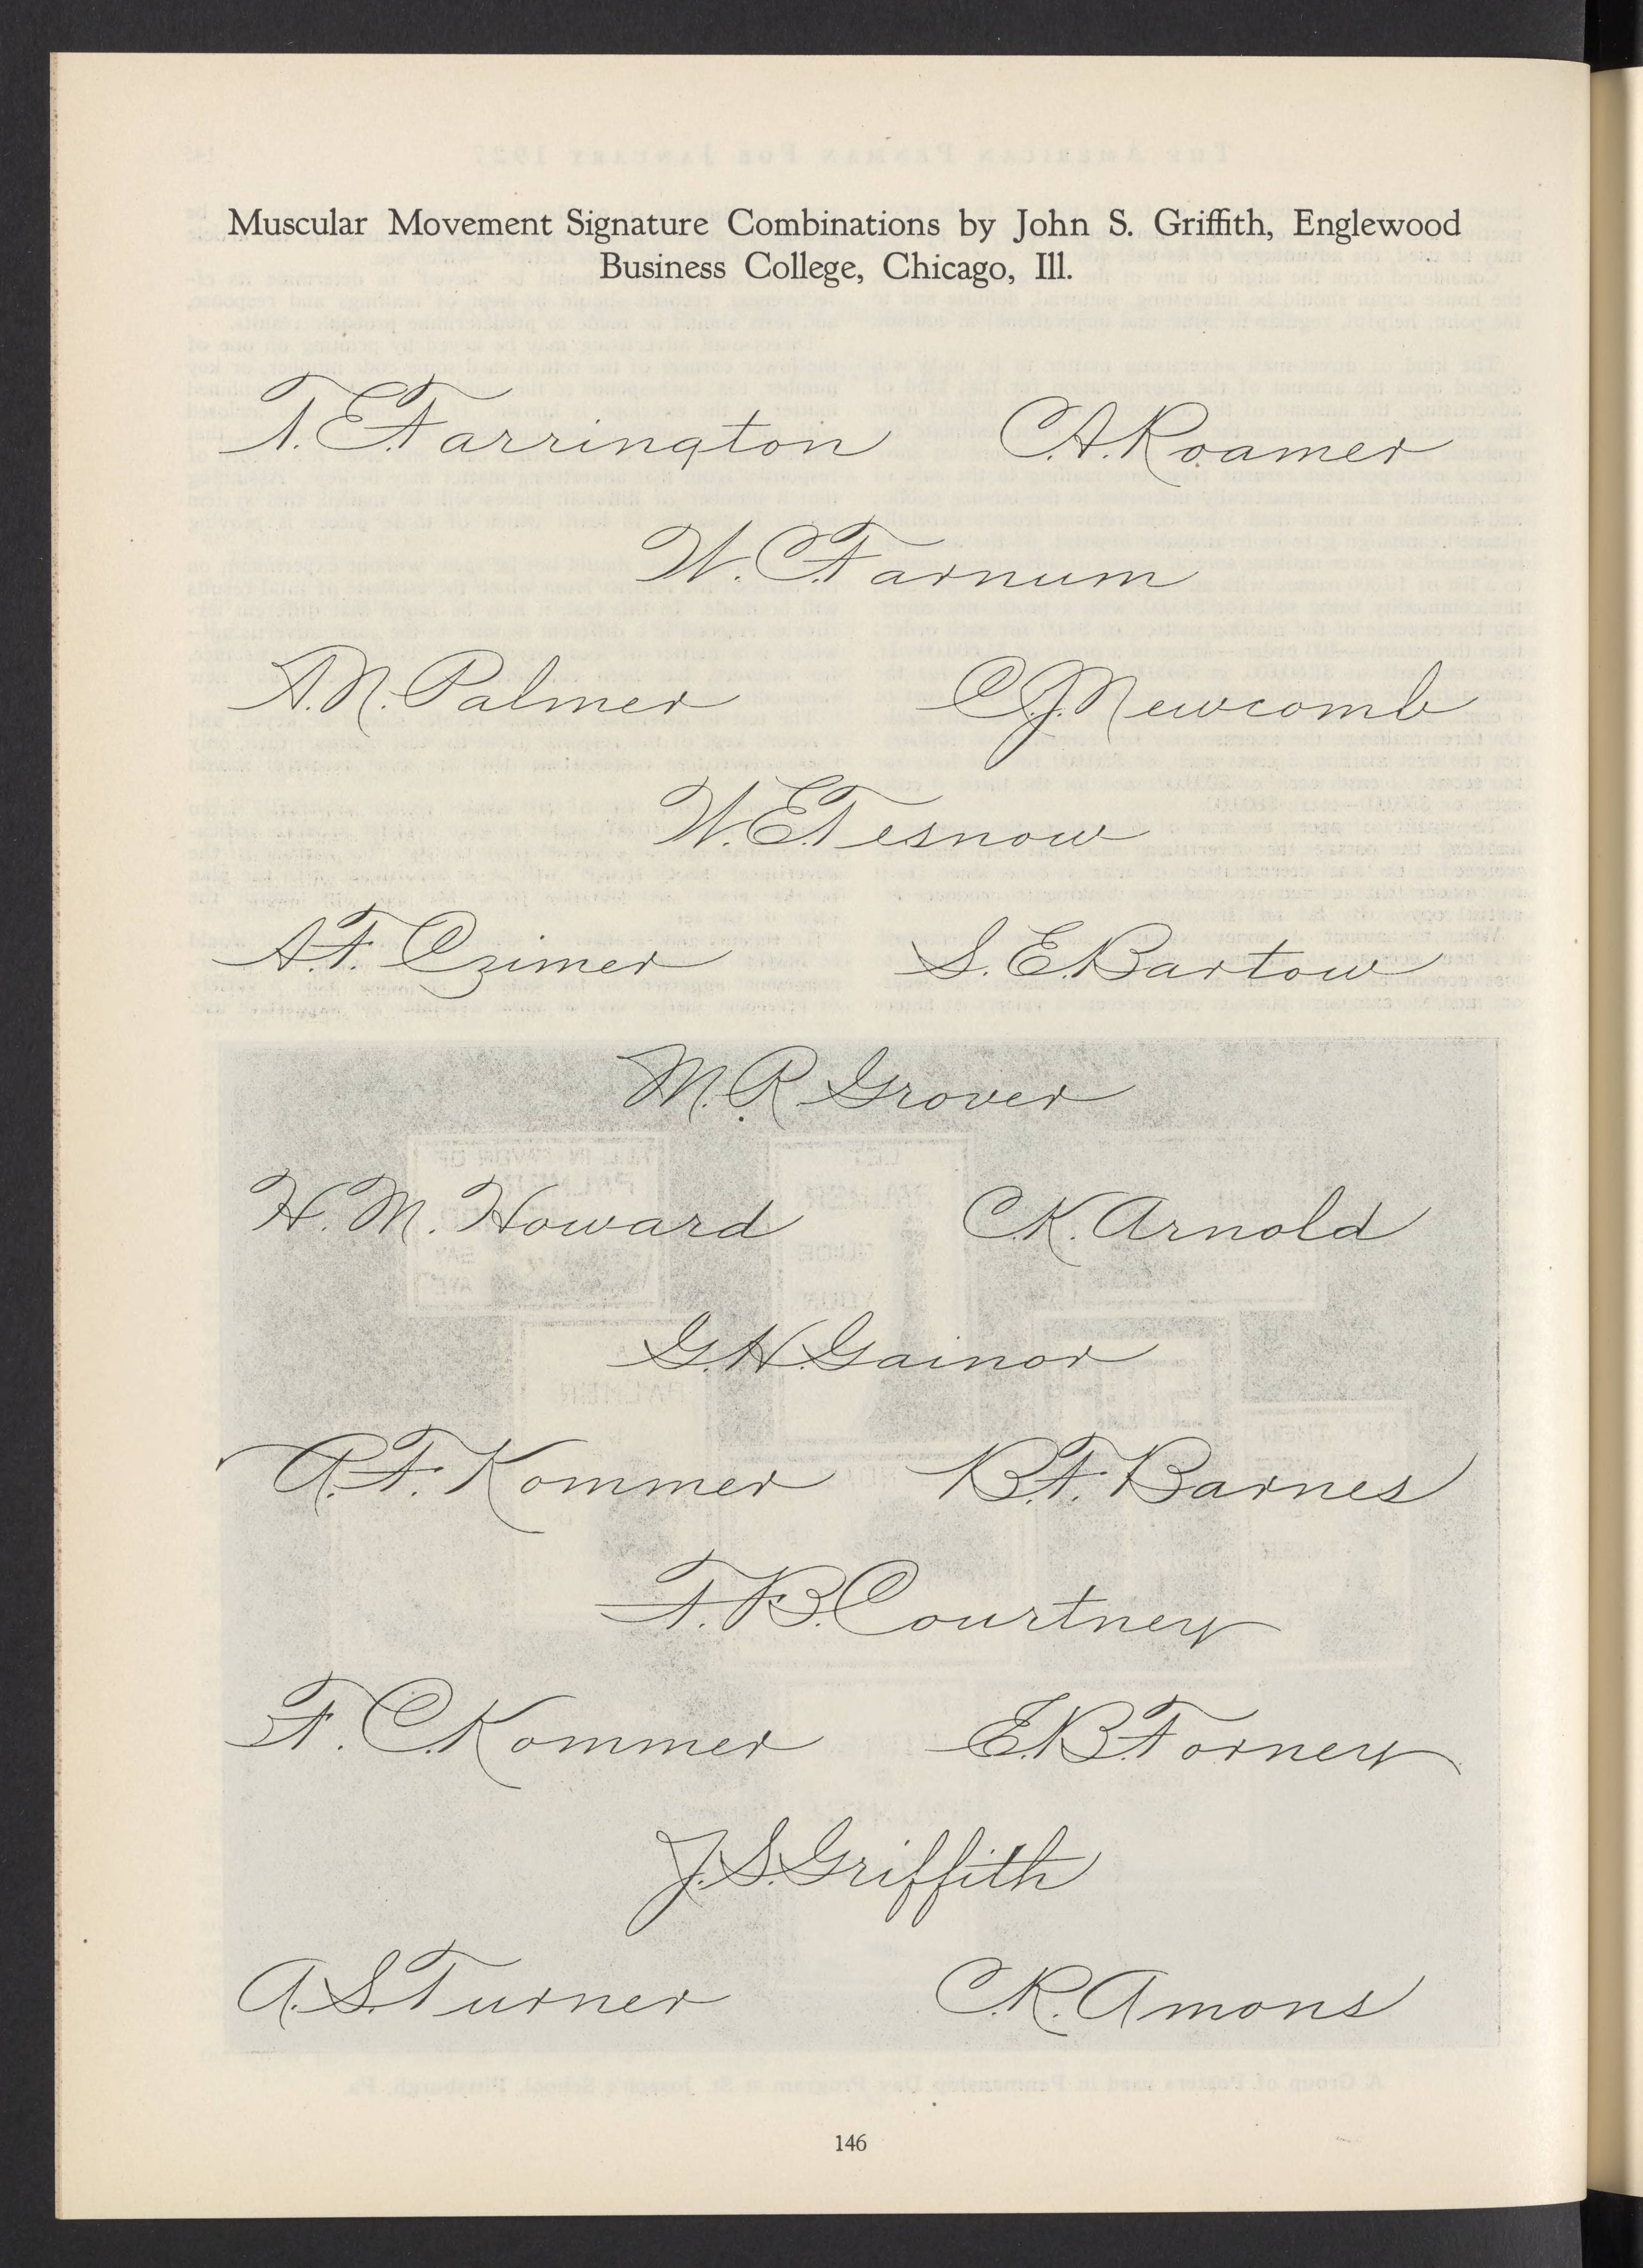 Muscular Movement Signature Combinations by John S. Griffith, Englewood
Business College, Chicago, Ill.
T. E. Farrington
C. A. Roamer
W. C. Farnum
A. N. Palmer
C. J. Newcomb
W. E. Tesnow
A. F. Czimer
S. E. Bartow
M. R. Grover
H. M. Howard
C. K. Arnold
G. H. Gainor
A. F. Kommer
B. F. Barnes
F. B. Courtney
F. C. Kommer
E. B. Forney
J. S. Griffith
A. S. Turner
C. R. Amons
146